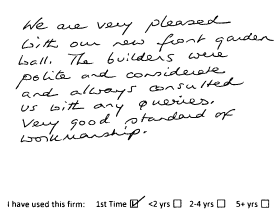 We are very pleased
with our new front garden
wall. The builders were
polite and considerate
and always consulted
us with any queries.
Very good standard of
workmanship.
I have used this firm: 1st Time ☑ <2 yrs ☐ 2-4 yrs ☐ 5+ yrs ☐